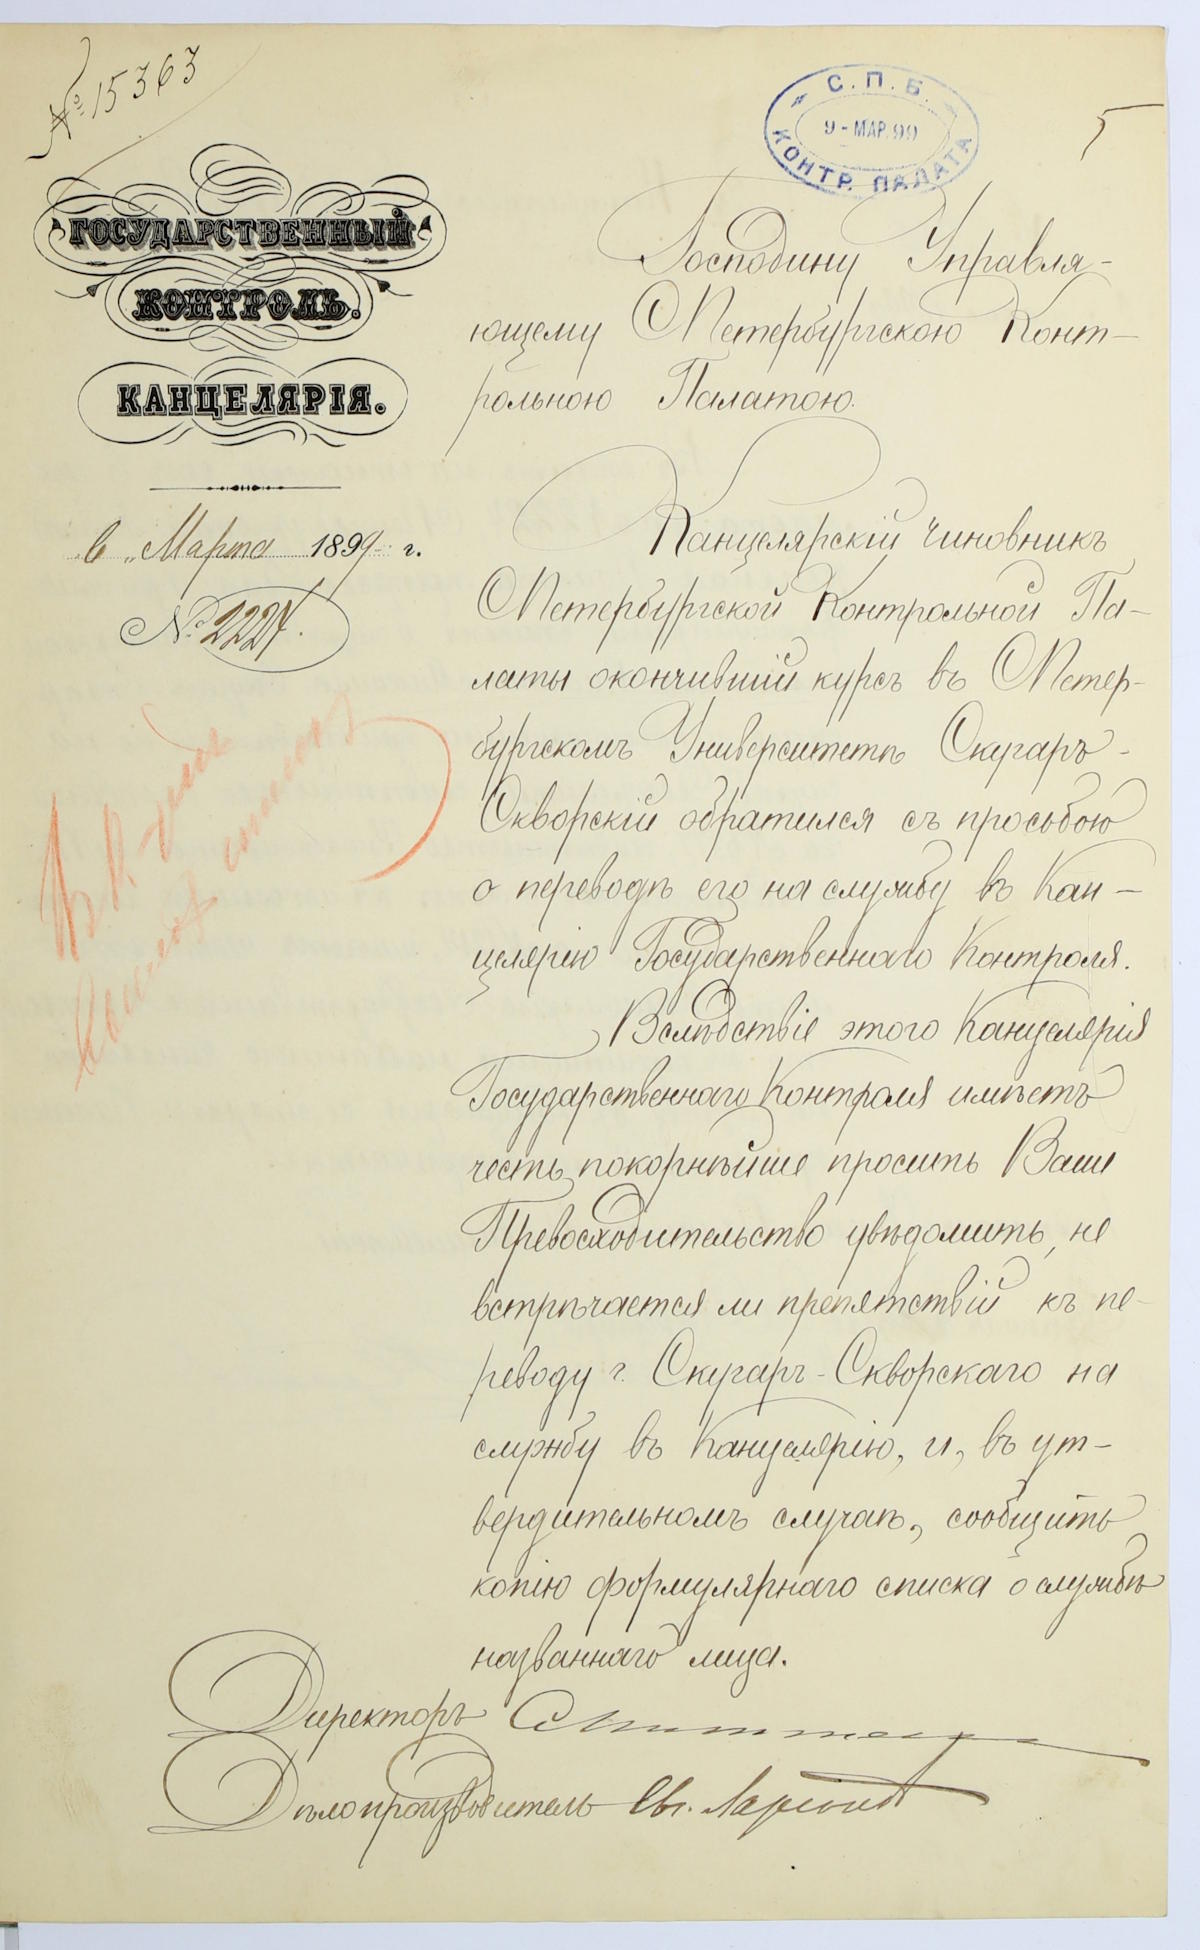 № 15363
С.П.Б.
9-МАР.99
КОНТР. ПАЛАТА
5
ГОСУДАРСТВЕННЫЙ
КОНТРОЛЬ.
КАНЦЕЛЯРІЯ.
6 „ Марта 1899 г.
№ 2227.
Господину Управля-
ющему Петербургскою Конт-
рольною Палатою.
Канцелярскій чиновникъ
Петербургской Контрольной Па-
латы окончившій курсъ въ Петер-
бургскомъ Университетѣ Скугаръ-
Скворскій обратился съ просьбою
о переводѣ его на службу въ Кан-
целярію Государственнаго Контроля.
Вслѣдствіе этого Канцелярія
Государственнаго Контроля имѣетъ
честь покорнѣйше просить Ваше
Превосходительство увѣдомить, не
встрѣчается ли препятствій къ пе-
реводу г. Скугаръ-Скворскаго на
службу въ Канцелярію, и, въ ут-
вердительномъ случаѣ, сообщить
копію формулярнаго списка о службѣ
названнаго лица.
Директоръ
Дѣлопроизводитель